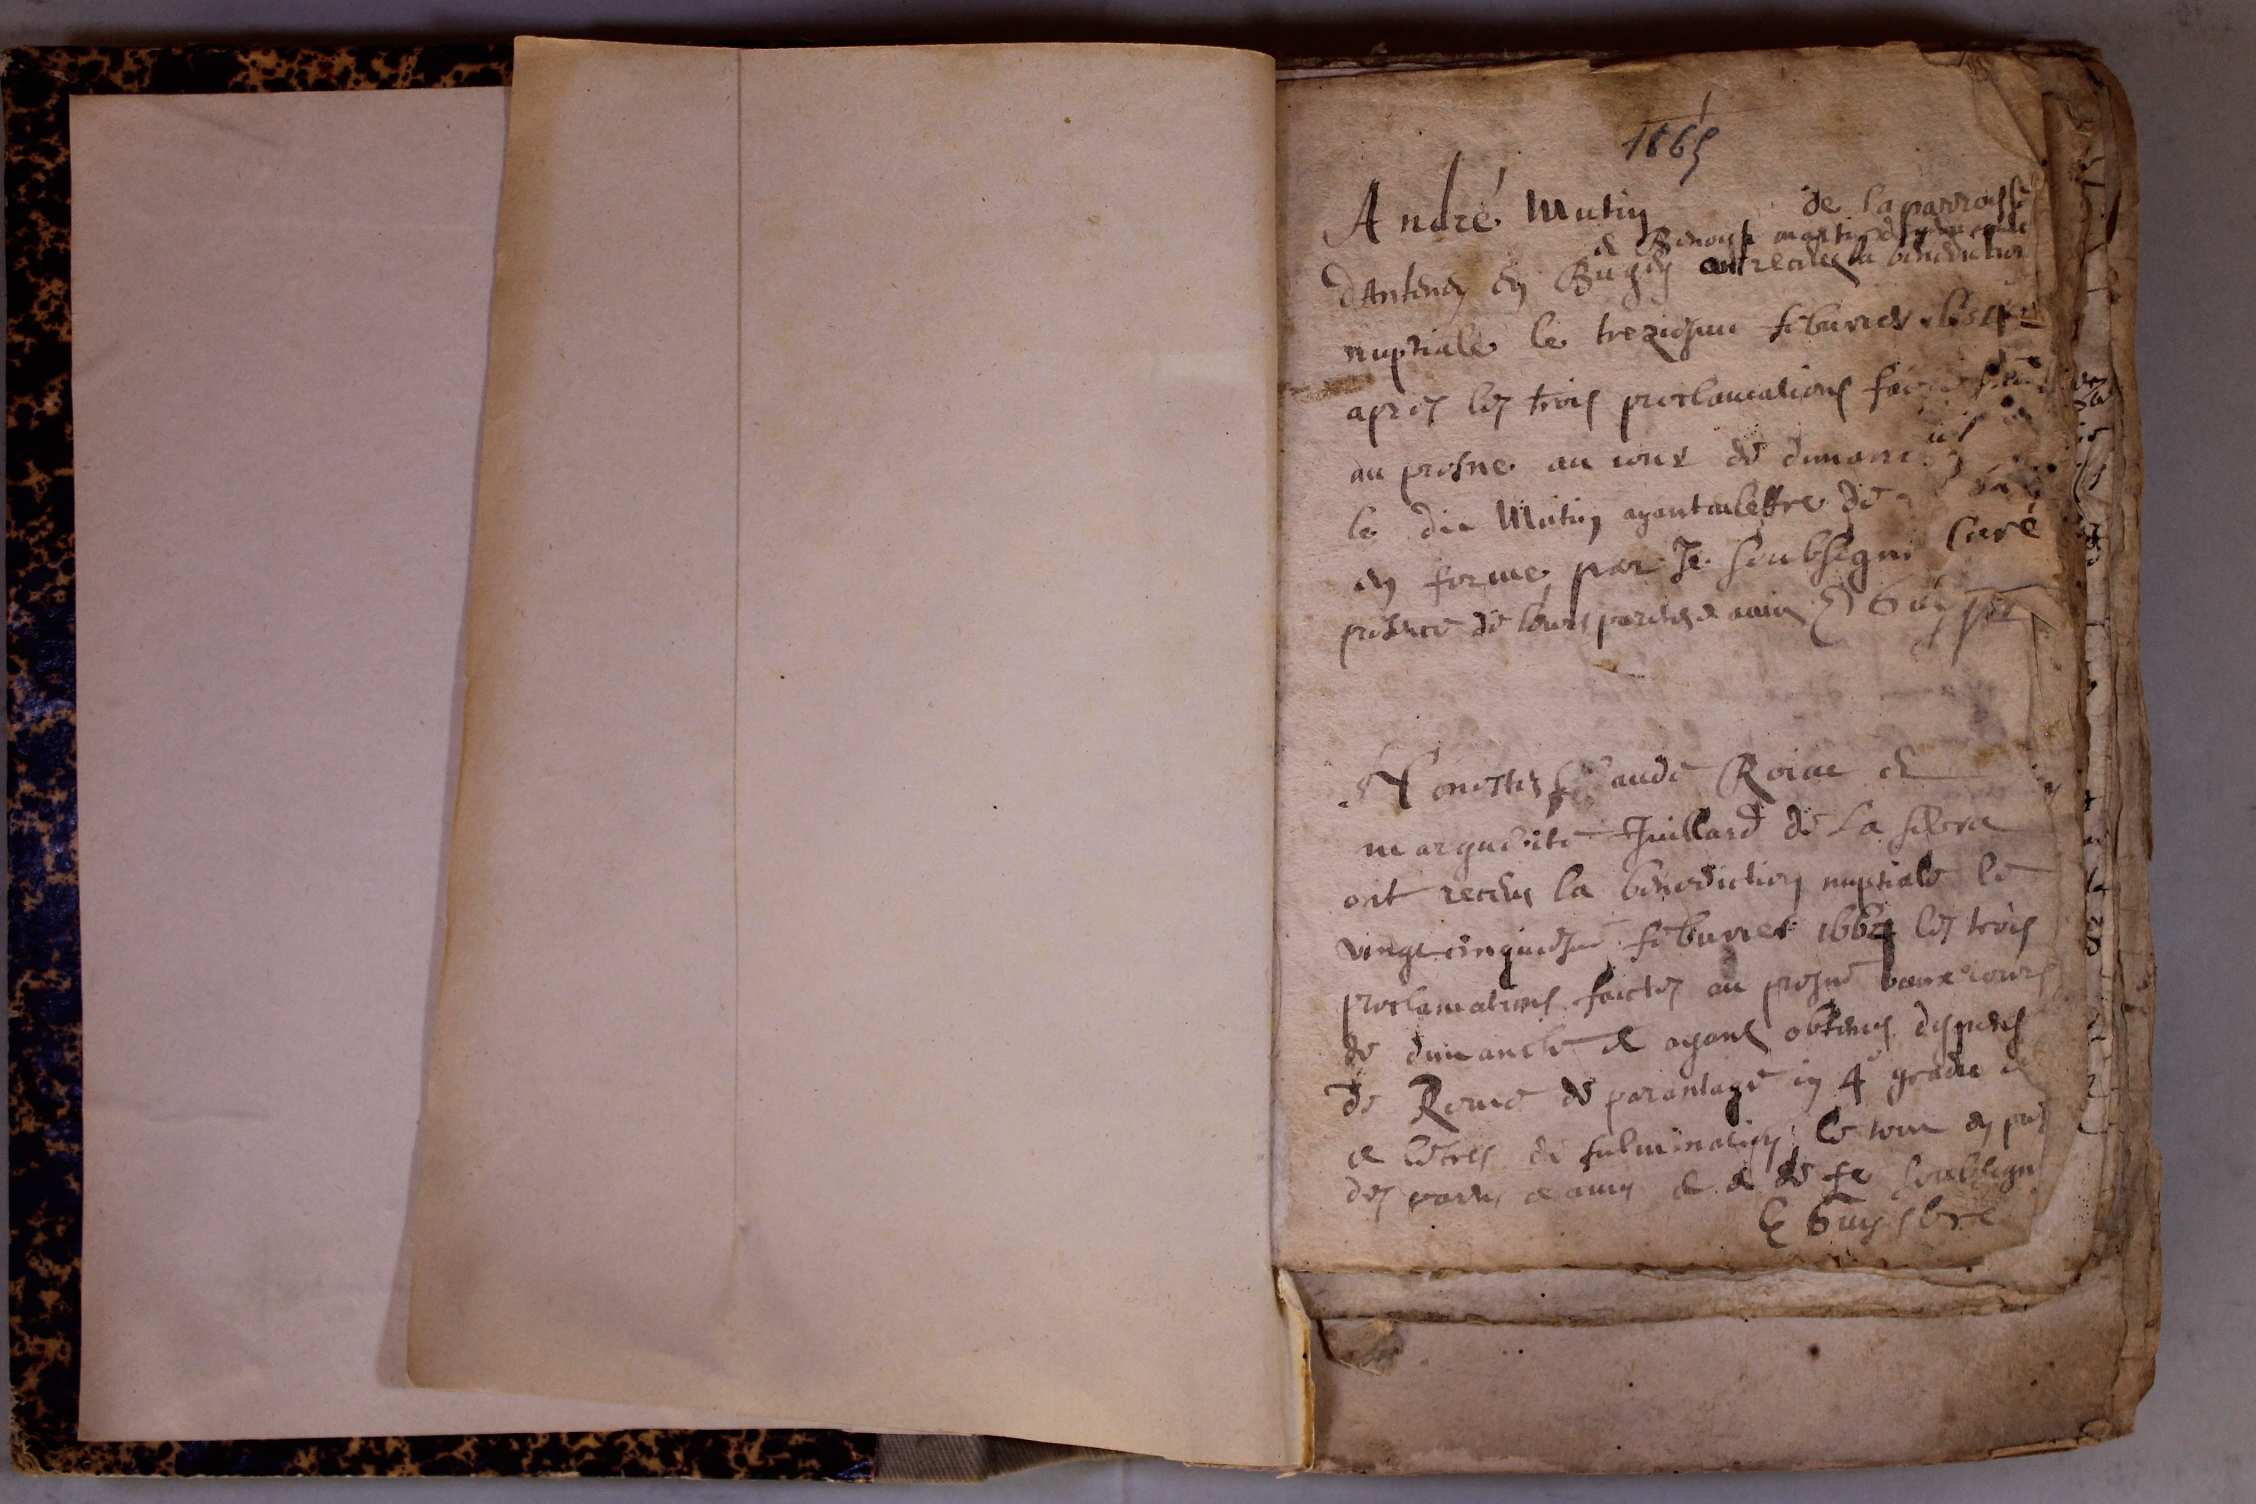 1665
André Mutin de la parroisse
& Benoiste
dAntenay en Bugey ont receus la benediction
nuptiale le treziesme febvrier 1664
apres les trois proclamations faictes
au prosne au iour de dimanche
le dit Mutin ayant lettre de
en forme par Je soubsigné Curé
presence de leurs parens & amis Guy
Honestes Claude Roine &
marguerite Juillard de La
ont receus la benediction nuptiale le
vingt cinquiesme febvrier 1664 les trois
proclamations faictes au prosne aux iours
de dimanche & ayans obtenus dispenses
de Rome de parantage in 4º gradu &
& letres de fulmination le tout en
des parens & amis & de Je soubsigné
Guy